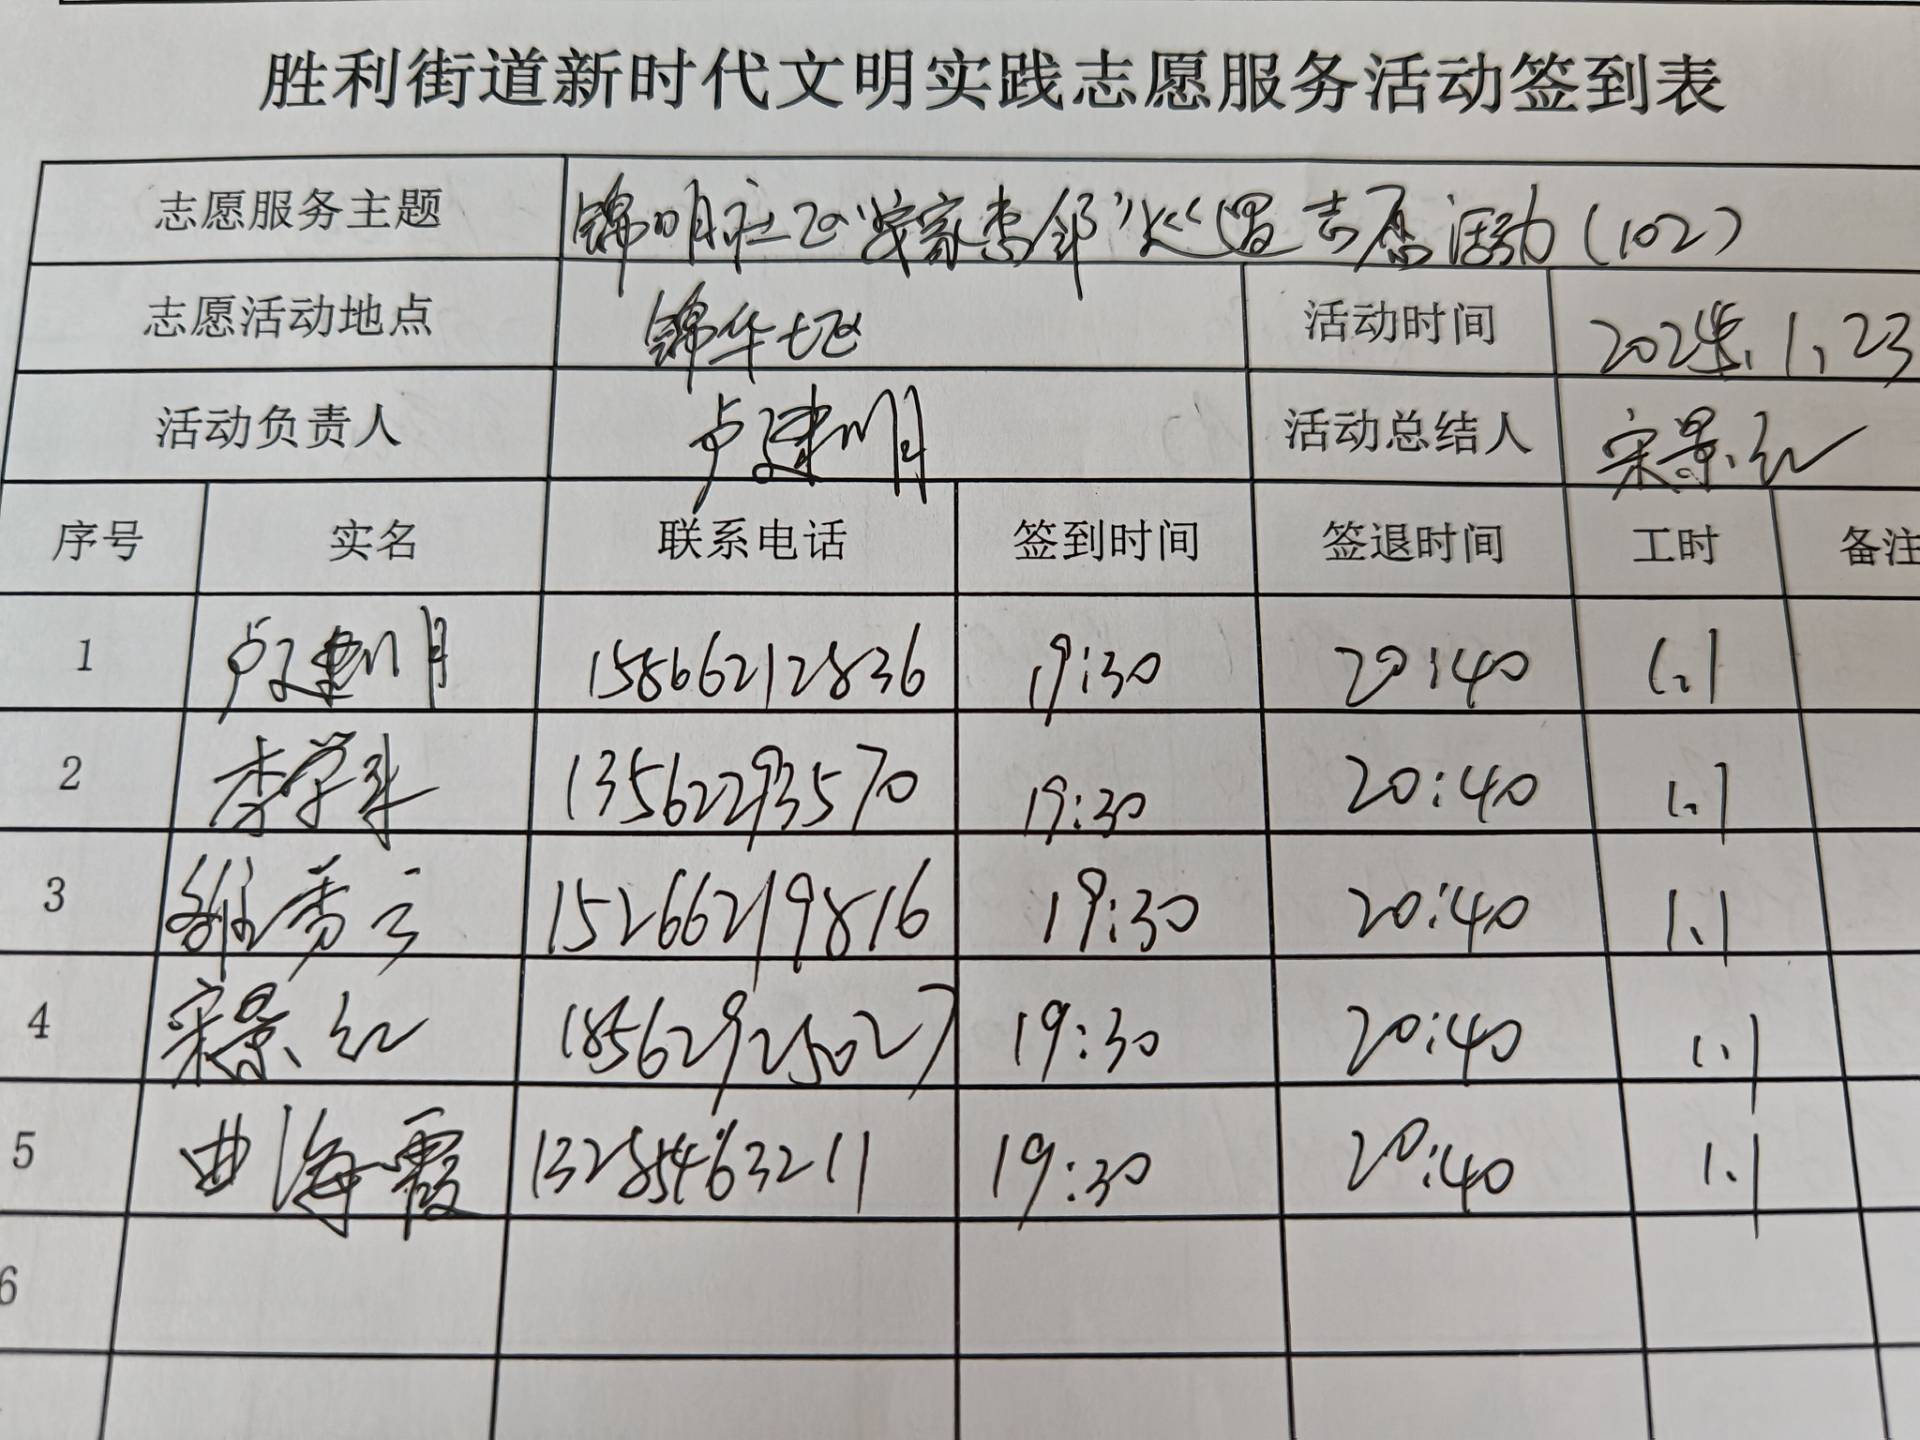 胜利街道新时代文明实践志愿服务活动签到表
志愿服务主题 锦明社区"安家李邻"巡逻志愿活动(102)
志愿活动地点 锦华七区 活动时间 2025.1.23
活动负责人 卢建明 活动总结人 宋景红
序号 实名 联系电话 签到时间 签退时间 工时 备注
1 卢建明 15866212836 19:30 20:40 1.1
2 李学 13562293570 19:30 20:40 1.1
3 孙秀云 15266219816 19:30 20:40 1.1
4 宋景红 18562925027 19:30 20:40 1.1
5 曲海霞 13285463211 19:30 20:40 1.1
6